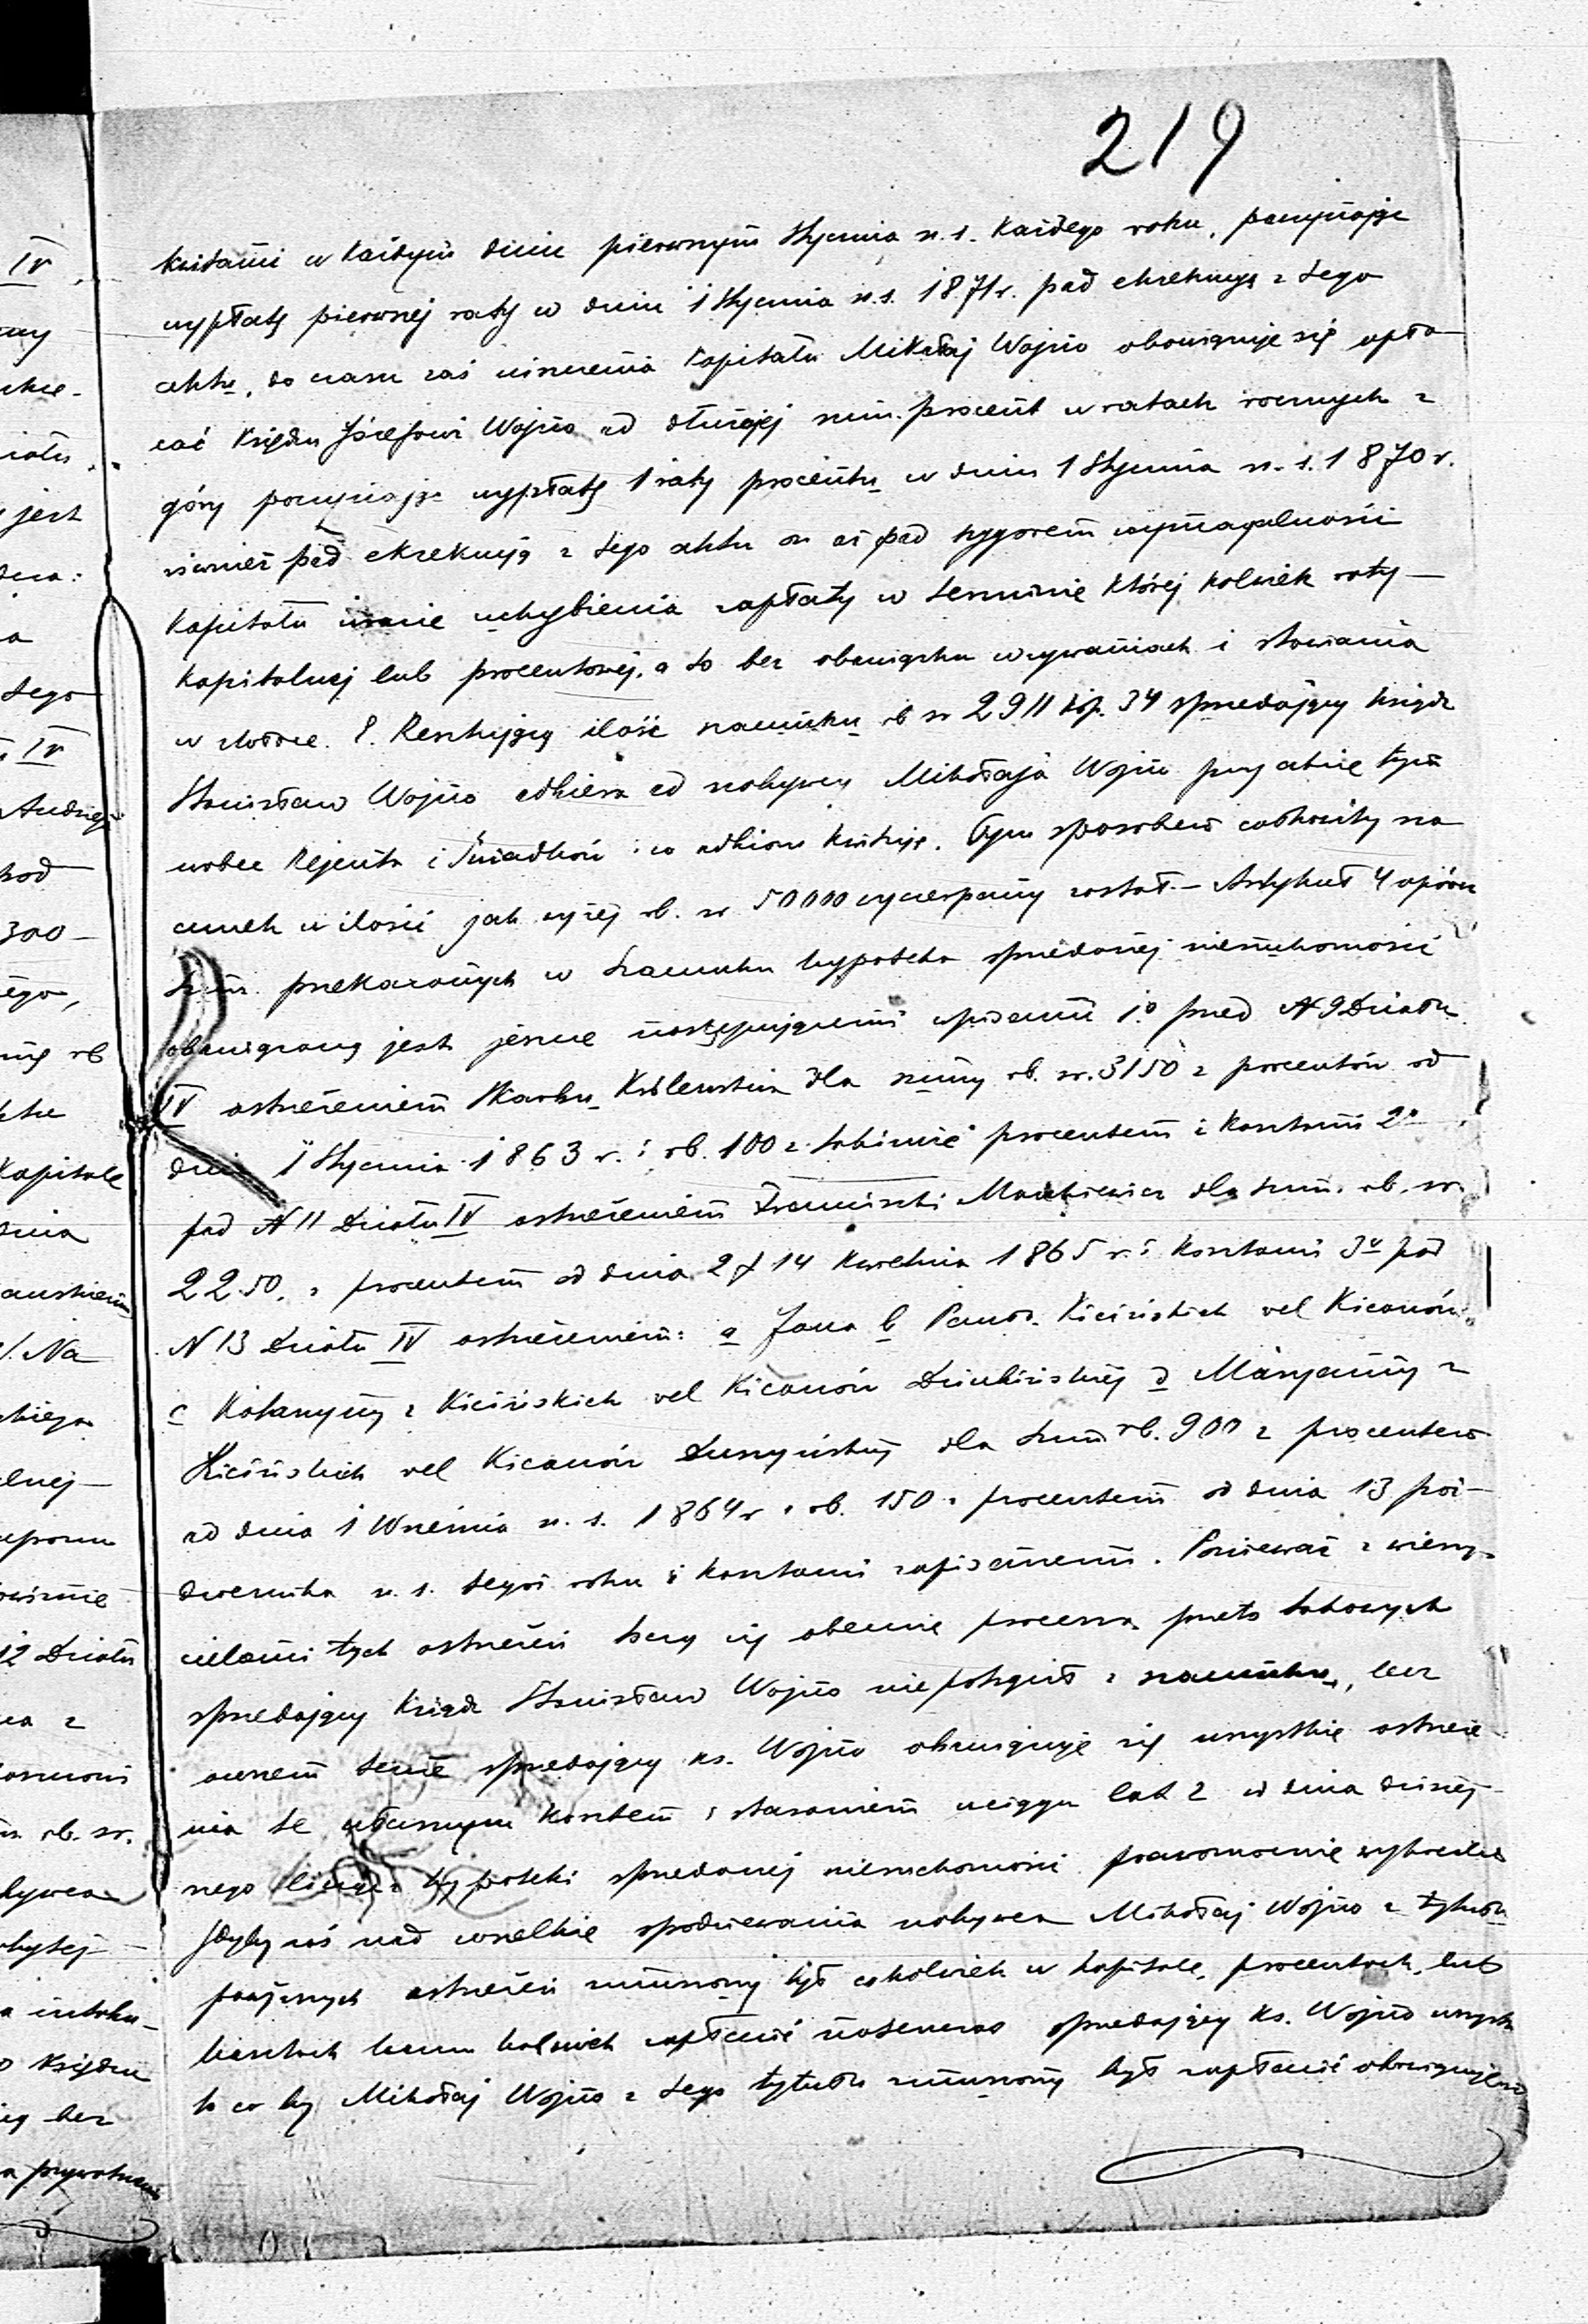 219
kwitami w każdym dniu pierwszym Stycznia n. s. każdego roku, poczynając
wypłatę pierwszej raty w dniu 1 Stycznia n. s. 1871 r. pod exekucyą z tego
aktu, do czasu zaś uiszczenia kapitału Mikołaj Wojno obowiązuje się opła-
cać Księdzu Józefowi Wojno od dłużnej sum. procent w ratach rocznych z
góry poczynając wypłatę 1 raty procentu w dniu 1 Stycznia n. s. 1870 r.
również pod exekucyą z tego aktu oraz pod rygorem wymagalności
kapitału w razie uchybienia zapłaty w terminie której kolwiek raty
kapitalnej lub procentowej, a to bez obowiązku wzywania i stawania
w zwłoce. 8. Resztującą ilość szacunku rb sr 2911 kop. 34 sprzedający ksiądz
Stanisław Wojno odbiera od nabywcy Mikołaja Wojno przy akcie tym
wobec Rejenta i Świadków i z odbioru kwituje. Tym sposobem całkowity sza
cunek w ilości jak wyżej rb. sr 50000 wyczerpany został. – Artykuł 4 oprócz
sum. przekazanych w szacunku hypoteka sprzedanej nieruchomości
obciążoną jest jeszcze następującemi wpisami 1º pod N 9 Działu
IV ostrzeżeniem Skarbu Królestwa dla sumy rb. sr. 3150 z procentów od
dnia 1 Stycznia 1863 r. i rb. 100 z takimże procentem i kosztami 2º
pod N 11 Działu IV ostrzeżeniem Franciszki Mackiewicz dla sum. rb. sr.
2250. z procentem od dnia 2/14 Kwietnia 1865 r. i kosztami 3º pod
N 13 Działu IV ostrzeżeniem: a Jana b Kicińskich vel Kicanów
c Katarzyny z Kicińskich vel Kicanów Dziubińskiej d Maryanny z
Kicińskich vel Kicanów dla sum rb. 900 z procentem
od dnia 1 Września n. s. 1864 r i rb. 150 z procentem od dnia 13 paź-
dziernika n. s. tegoż roku i kosztami zapisanemi. Ponieważ z wierzy-
cielami tych ostrzeżeń toczą się obecnie procesa przeto takowych
sprzedający Ksiądz Stanisław Wojno nie potrącił z szacunku, lecz
owszem tenże sprzedający ks. Wojno obowiązuje się wszystkie ostrzeże-
nia te własnym kosztem i staraniem w ciągu lat 2 od dnia dzisiej-
szego licząc z hypoteki sprzedanej nieruchomości prawomocnie wykreślić
Gdyby zaś nad wszelkie spodziewania nabywca Mikołaj Wojno z tytułu
powyższych ostrzeżeń zmuszony był cokolwiek w kapitale, procentach, lub
kosztach komu kolwiek zapłacić natenczas sprzedający ks. Wojno wszystko
to co by Mikołaj Wojno z tego tytułu zmuszony był zapłacić obowiązuje się